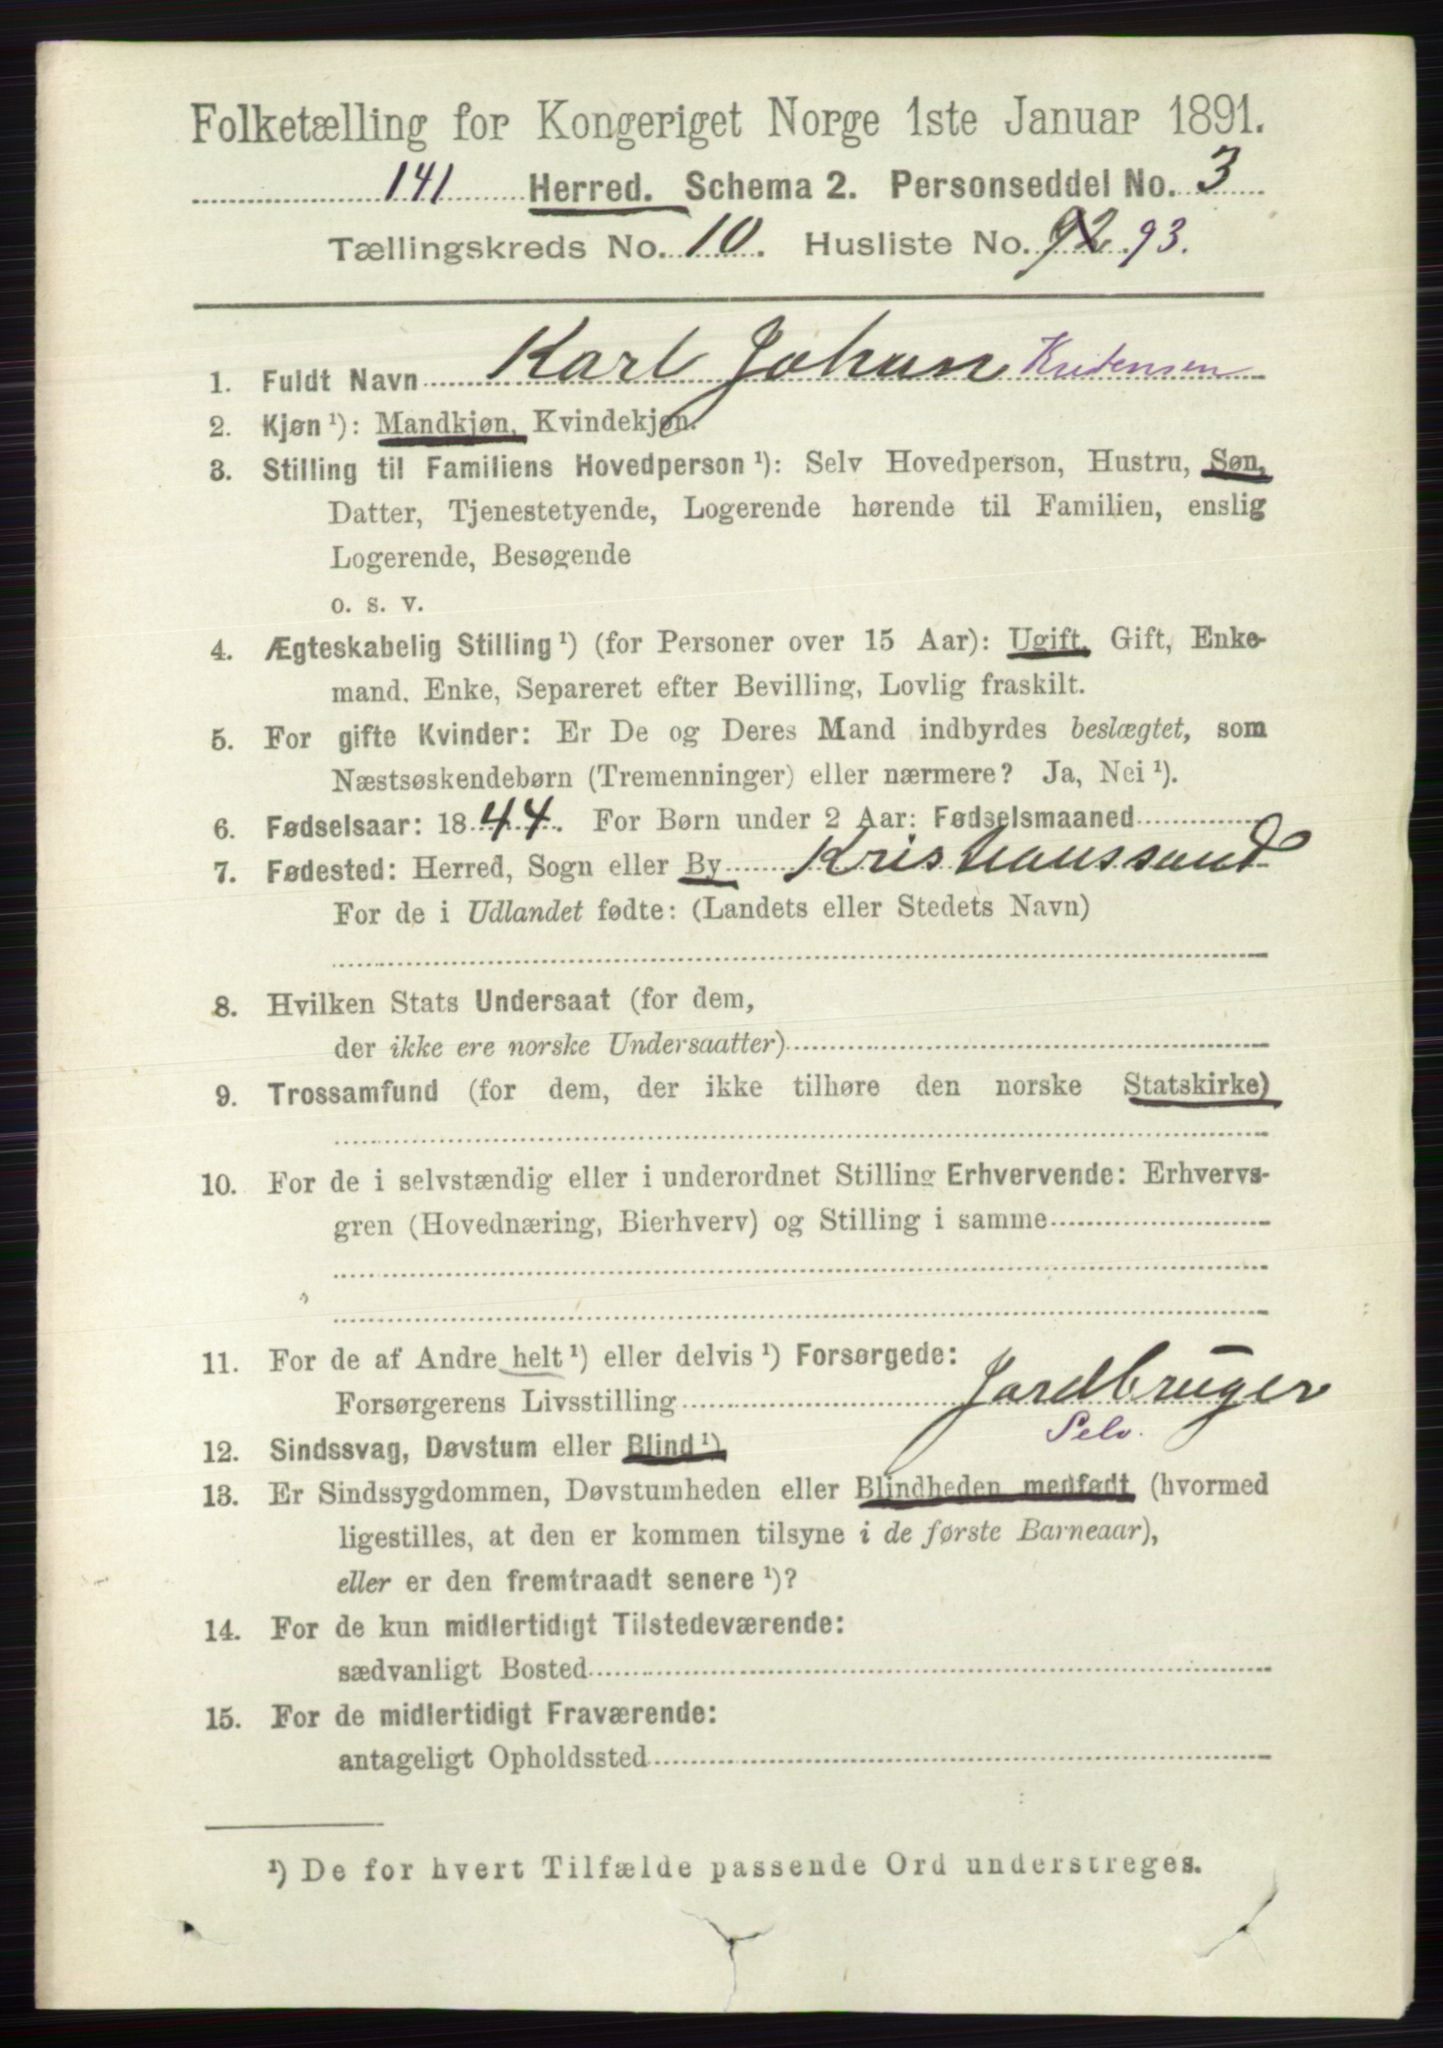 Folketælling for Kongeriget Norge 1ste Januar 1891.
141 Herred. Schema 2. Personseddel No. 3
Tællingskreds No. 10. Husliste No. 92 93.
1. Fuldt Navn Karl Johan
2. Kjøn ¹): Mandkjøn, Kvindekjøn.
3. Stilling til Familiens Hovedperson ¹): Selv Hovedperson, Hustru, Søn,
Datter, Tjenestetyende, Logerende hørende til Familien, enslig
Logerende, Besøgende
o. s. v.
4. Ægteskabelig Stilling ¹) (for Personer over 15 Aar): Ugift, Gift, Enke-
mand, Enke, Separeret efter Bevilling, Lovlig fraskilt.
5. For gifte Kvinder: Er De og Deres Mand indbyrdes beslægtet, som
Næstsøskendebørn (Tremenninger) eller nærmere? Ja, Nei ¹).
6. Fødselsaar: 1844. For Børn under 2 Aar: Fødselsmaaned
7. Fødested: Herred, Sogn eller By Kristianssand
For de i Udlandet fødte: (Landets eller Stedets Navn)
8. Hvilken Stats Undersaat (for dem,
der ikke ere norske Undersaatter)
9. Trossamfund (for dem, der ikke tilhøre den norske Statskirke)
10. For de i selvstændig eller i underordnet Stilling Erhvervende: Erhvervs-
gren (Hovednæring, Bierhverv) og Stilling i samme
11. For de af Andre helt ¹) eller delvis ¹) Forsørgede:
Forsørgerens Livsstilling Jordbruger
Selv.
12. Sindssvag, Døvstum eller Blind ¹)
13. Er Sindssygdommen, Døvstumheden eller Blindheden medfødt (hvormed
ligestilles, at den er kommen tilsyne i de første Barneaar),
eller er den fremtraadt senere ¹)?
14. For de kun midlertidigt Tilstedeværende:
sædvanligt Bosted
15. For de midlertidigt Fraværende:
antageligt Opholdssted
¹) De for hvert Tilfælde passende Ord understreges.